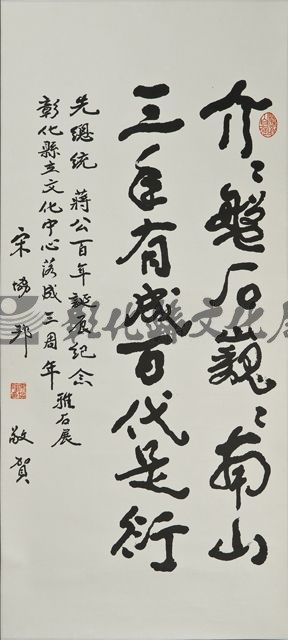 介〻磐石巍〻南山
三年有成百代是衍
先總統 蔣公百年誕辰紀念
彰化縣立文化中心落成三周年雅石展
宋 邦 敬賀
彰化縣文化局